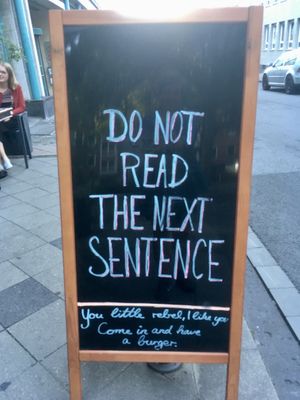 DO NOT
READ
THE NEXT
SENTENCE
You little rebel, I like you
Come in and have
a burger.